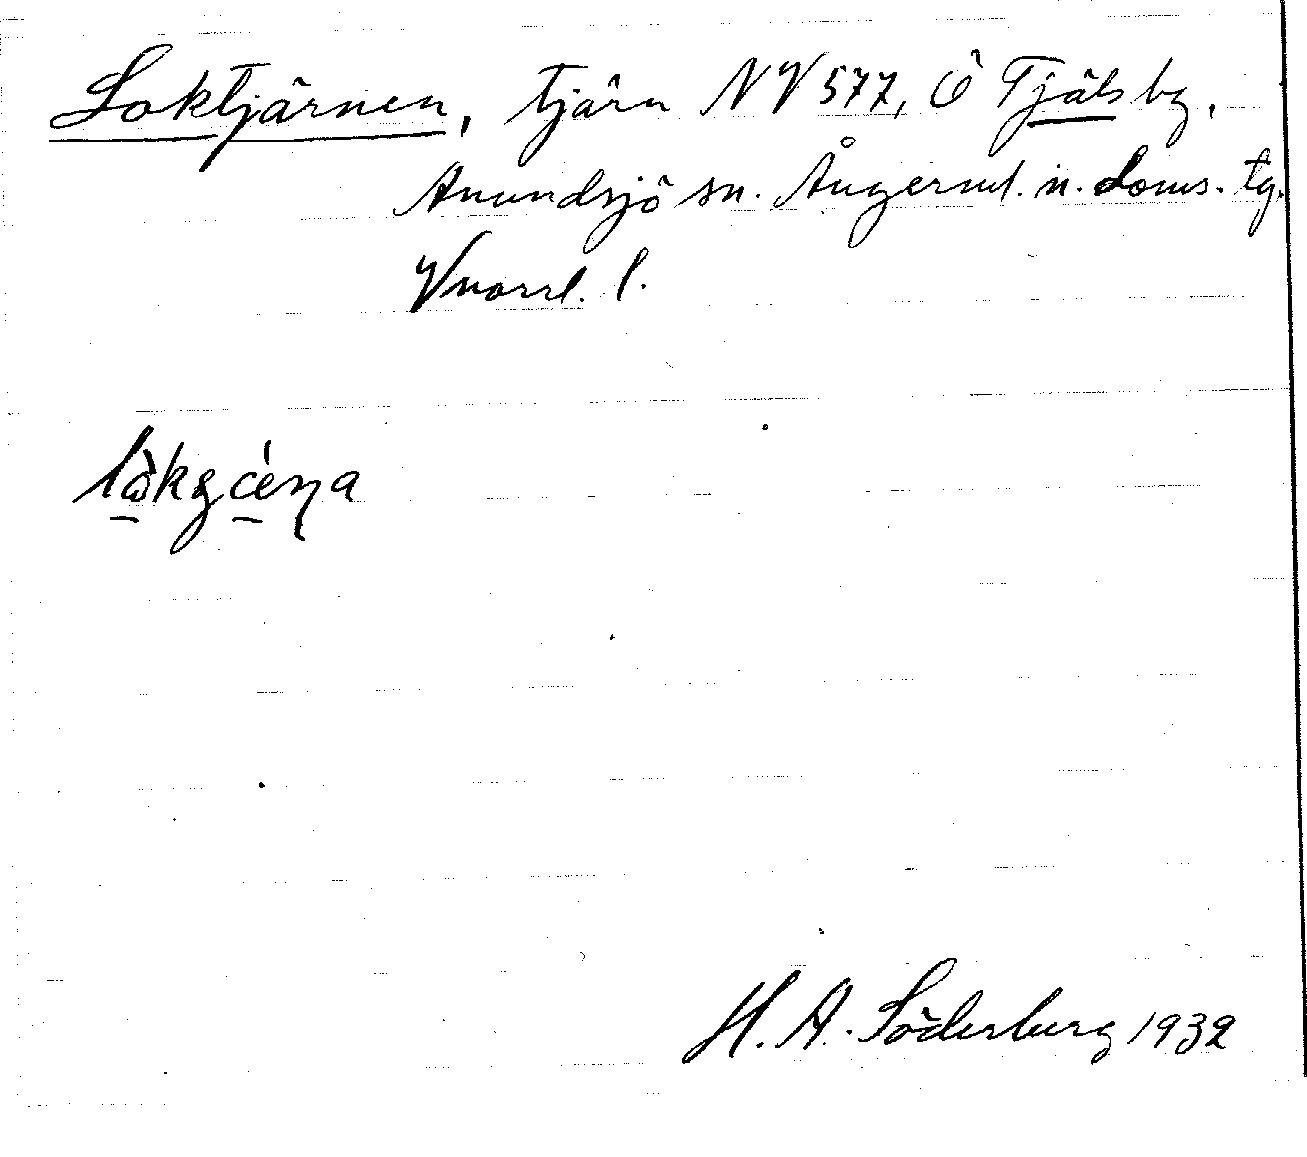 Loktjärnen, tjärn NV 577, Ö Tjäls by,
Anundsjö sn. Ångerml. n. doms. tg.
Vnorrl. l.
H. A. Söderberg 1932